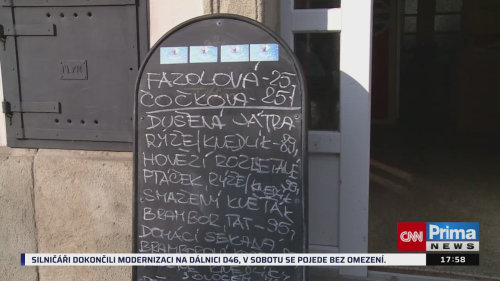 FAZOLOVÁ - 25,-
ČOČKOVA - 25,-
DUŠENÁ JÁTRA
RÝŽE/KNEDLÍK - 85,
HOVĚZÍ ROZLETĚLÉ
PTÁČEK, RÝŽE/KNEDLÍK
SMAŽENÝ KVĚTÁK
BRAMBOR, TAT - 95,
DOMÁCÍ SEKANÁ
PLYN
CNN Prima
NEWS
SILNIČÁŘI DOKONČILI MODERNIZACI NA DÁLNICI D46, V SOBOTU SE POJEDE BEZ OMEZENÍ.
17:58